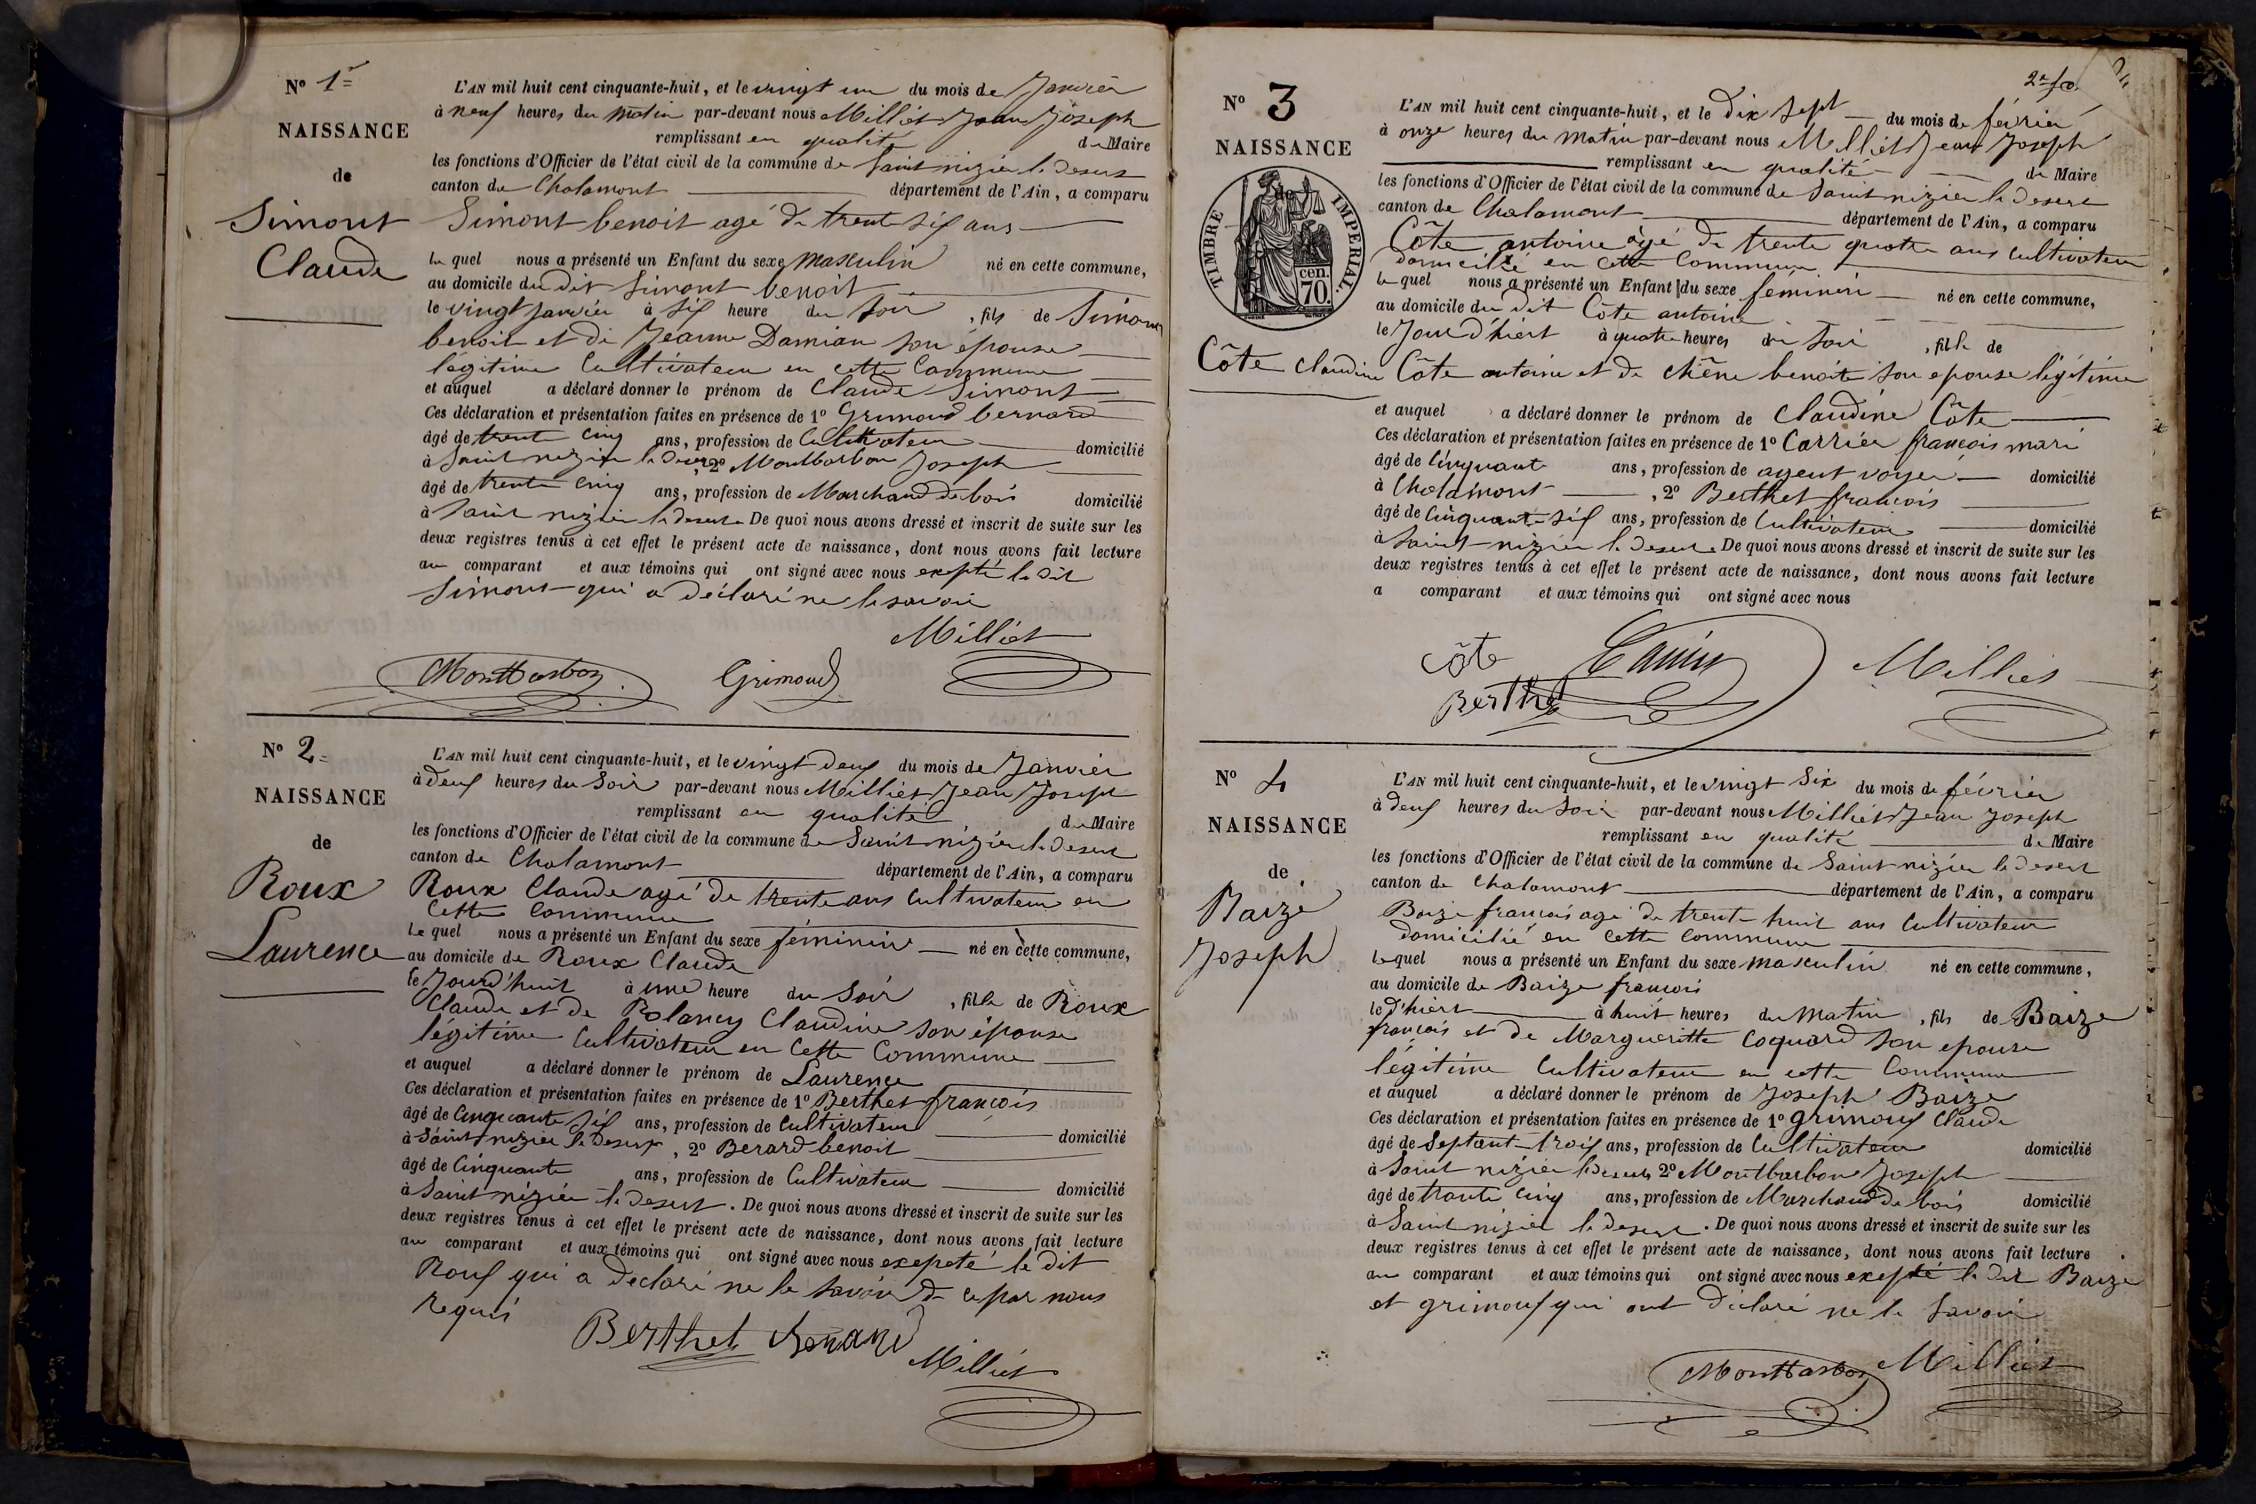 N° 1er
NAISSANCE
de
Simont
Claude
L'AN mil huit cent cinquante-huit, et le vingt un du mois de Janvier
à neuf heures du matin par-devant nous Milliet Jean Joseph
remplissant en qualité de Maire
les fonctions d'Officier de l'état civil de la commune de Saint nizier le Desert
canton de Chalamont département de l'Ain, a comparu
Simont benoit agé de trente six ans
le quel nous a présenté un Enfant du sexe masculin né en cette commune,
au domicile du dit Simont benoit
le vingt janvier à six heure du soir, fils de Simont
benoit et de Jeanne Damian son épouse
légitime Cultivateur en cette Commune
et auquel a déclaré donner le prénom de Claude Simont
Ces déclaration et présentation faites en présence de 1° Grimoud bernard
âgé de trente cinq ans, profession de Cultivateur domicilié
à Saint nizier le Desert, 2° Montbarbon Joseph
âgé de trente cinq ans, profession de Marchand de bois domicilié
à Saint nizier le desert. De quoi nous avons dressé et inscrit de suite sur les
deux registres tenus à cet effet le présent acte de naissance, dont nous avons fait lecture
au comparant et aux témoins qui ont signé avec nous exepté le dit
Simont qui a déclaré ne le savoir
Milliet
Montbarbon Grimoud
N° 2
NAISSANCE
de
Roux
Laurence
L'AN mil huit cent cinquante-huit, et le vingt deux du mois de Janvier
à deux heures du Soir par-devant nous Milliet Jean Joseph
remplissant en qualité de Maire
les fonctions d'Officier de l'état civil de la commune de Saint nizier le Desert
canton de Chalamont département de l'Ain, a comparu
Roux Claude agé de trente ans Cultivateur en
Cette Commune
le quel nous a présenté un Enfant du sexe féminin né en cette commune,
au domicile de Roux Claude
le Jourd'huit à une heure du Soir, fille de Roux
Claude et de Polancy Claudine son épouse
légitime Cultivateur en Cette Commune
et auquel a déclaré donner le prénom de Laurence
Ces déclaration et présentation faites en présence de 1° Berthet françois
âgé de Cinquante six ans, profession de Cultivateur domicilié
à Saint nizier le Desert, 2° Berard benoit
âgé de Cinquante ans, profession de Cultivateur domicilié
à Saint nizier le Desert. De quoi nous avons dressé et inscrit de suite sur les
deux registres tenus à cet effet le présent acte de naissance, dont nous avons fait lecture
au comparant et aux témoins qui ont signé avec nous exepeté le dit
Roux qui a declaré ne le savoir de ce par nous
requis
Berthet Milliet
N° 3
NAISSANCE
TIMBRE IMPERIAL.
cen.
70.
Côte claudine
L'AN mil huit cent cinquante-huit, et le Dix Sept du mois de février
à onze heures du matin par-devant nous Milliet Jean Joseph
remplissant en qualité de Maire
les fonctions d'Officier de l'état civil de la commune de Saint nizier le Desert
canton de Chalamont département de l'Ain, a comparu
Côte antoine âgé de trente quatre ans cultivateur
domicilié en cette Commune
le quel nous a présenté un Enfant du sexe feminin né en cette commune,
au domicile du dit Côte antoine
le Jour d'hiert à quatre heures du soir, fille de
Côte antoine et de chêne benoite son epouse légitime
et auquel a déclaré donner le prénom de Claudine Côte
Ces déclaration et présentation faites en présence de 1° Carrier françois mari
âgé de Cinquante ans, profession de agent voyer domicilié
à Chalamont, 2° Berthet françois
âgé de Cinquante six ans, profession de Cultivateur domicilié
à Saint nizier le Desert. De quoi nous avons dressé et inscrit de suite sur les
deux registres tenus à cet effet le présent acte de naissance, dont nous avons fait lecture
a comparant et aux témoins qui ont signé avec nous
Côte Milliet
Berthet
N° 4
NAISSANCE
de
Baizé
Joseph
L'AN mil huit cent cinquante-huit, et le vingt Six du mois de février
à deux heures du Soir par-devant nous Milliet Jean Joseph
remplissant en qualité de Maire
les fonctions d'Officier de l'état civil de la commune de Saint nizier le Desert
canton de Chalamont département de l'Ain, a comparu
Baize françois agé de trente huit ans Cultivateur
domicilié en Cette Commune
le quel nous a présenté un Enfant du sexe masculin né en cette commune,
au domicile de Baize françois
le d'hiert à huit heures du matin, fils de Baize
françois et de Margueritte Coquard son epouse
légitime Cultivateur en cette Commune
et auquel a déclaré donner le prénom de Joseph Baize
Ces déclaration et présentation faites en présence de 1° grimoux Claude
âgé de Septent trois ans, profession de Cultivateur domicilié
à Saint nizier le Desert, 2° Montbarbon Joseph
âgé de trante cinq ans, profession de Marchand de bois domicilié
à Saint nizier le desert. De quoi nous avons dressé et inscrit de suite sur les
deux registres tenus à cet effet le présent acte de naissance, dont nous avons fait lecture
au comparant et aux témoins qui ont signé avec nous exepté le dit Baize
et grimoux qui ont déclaré ne le savoir
Montbarbon Milliet